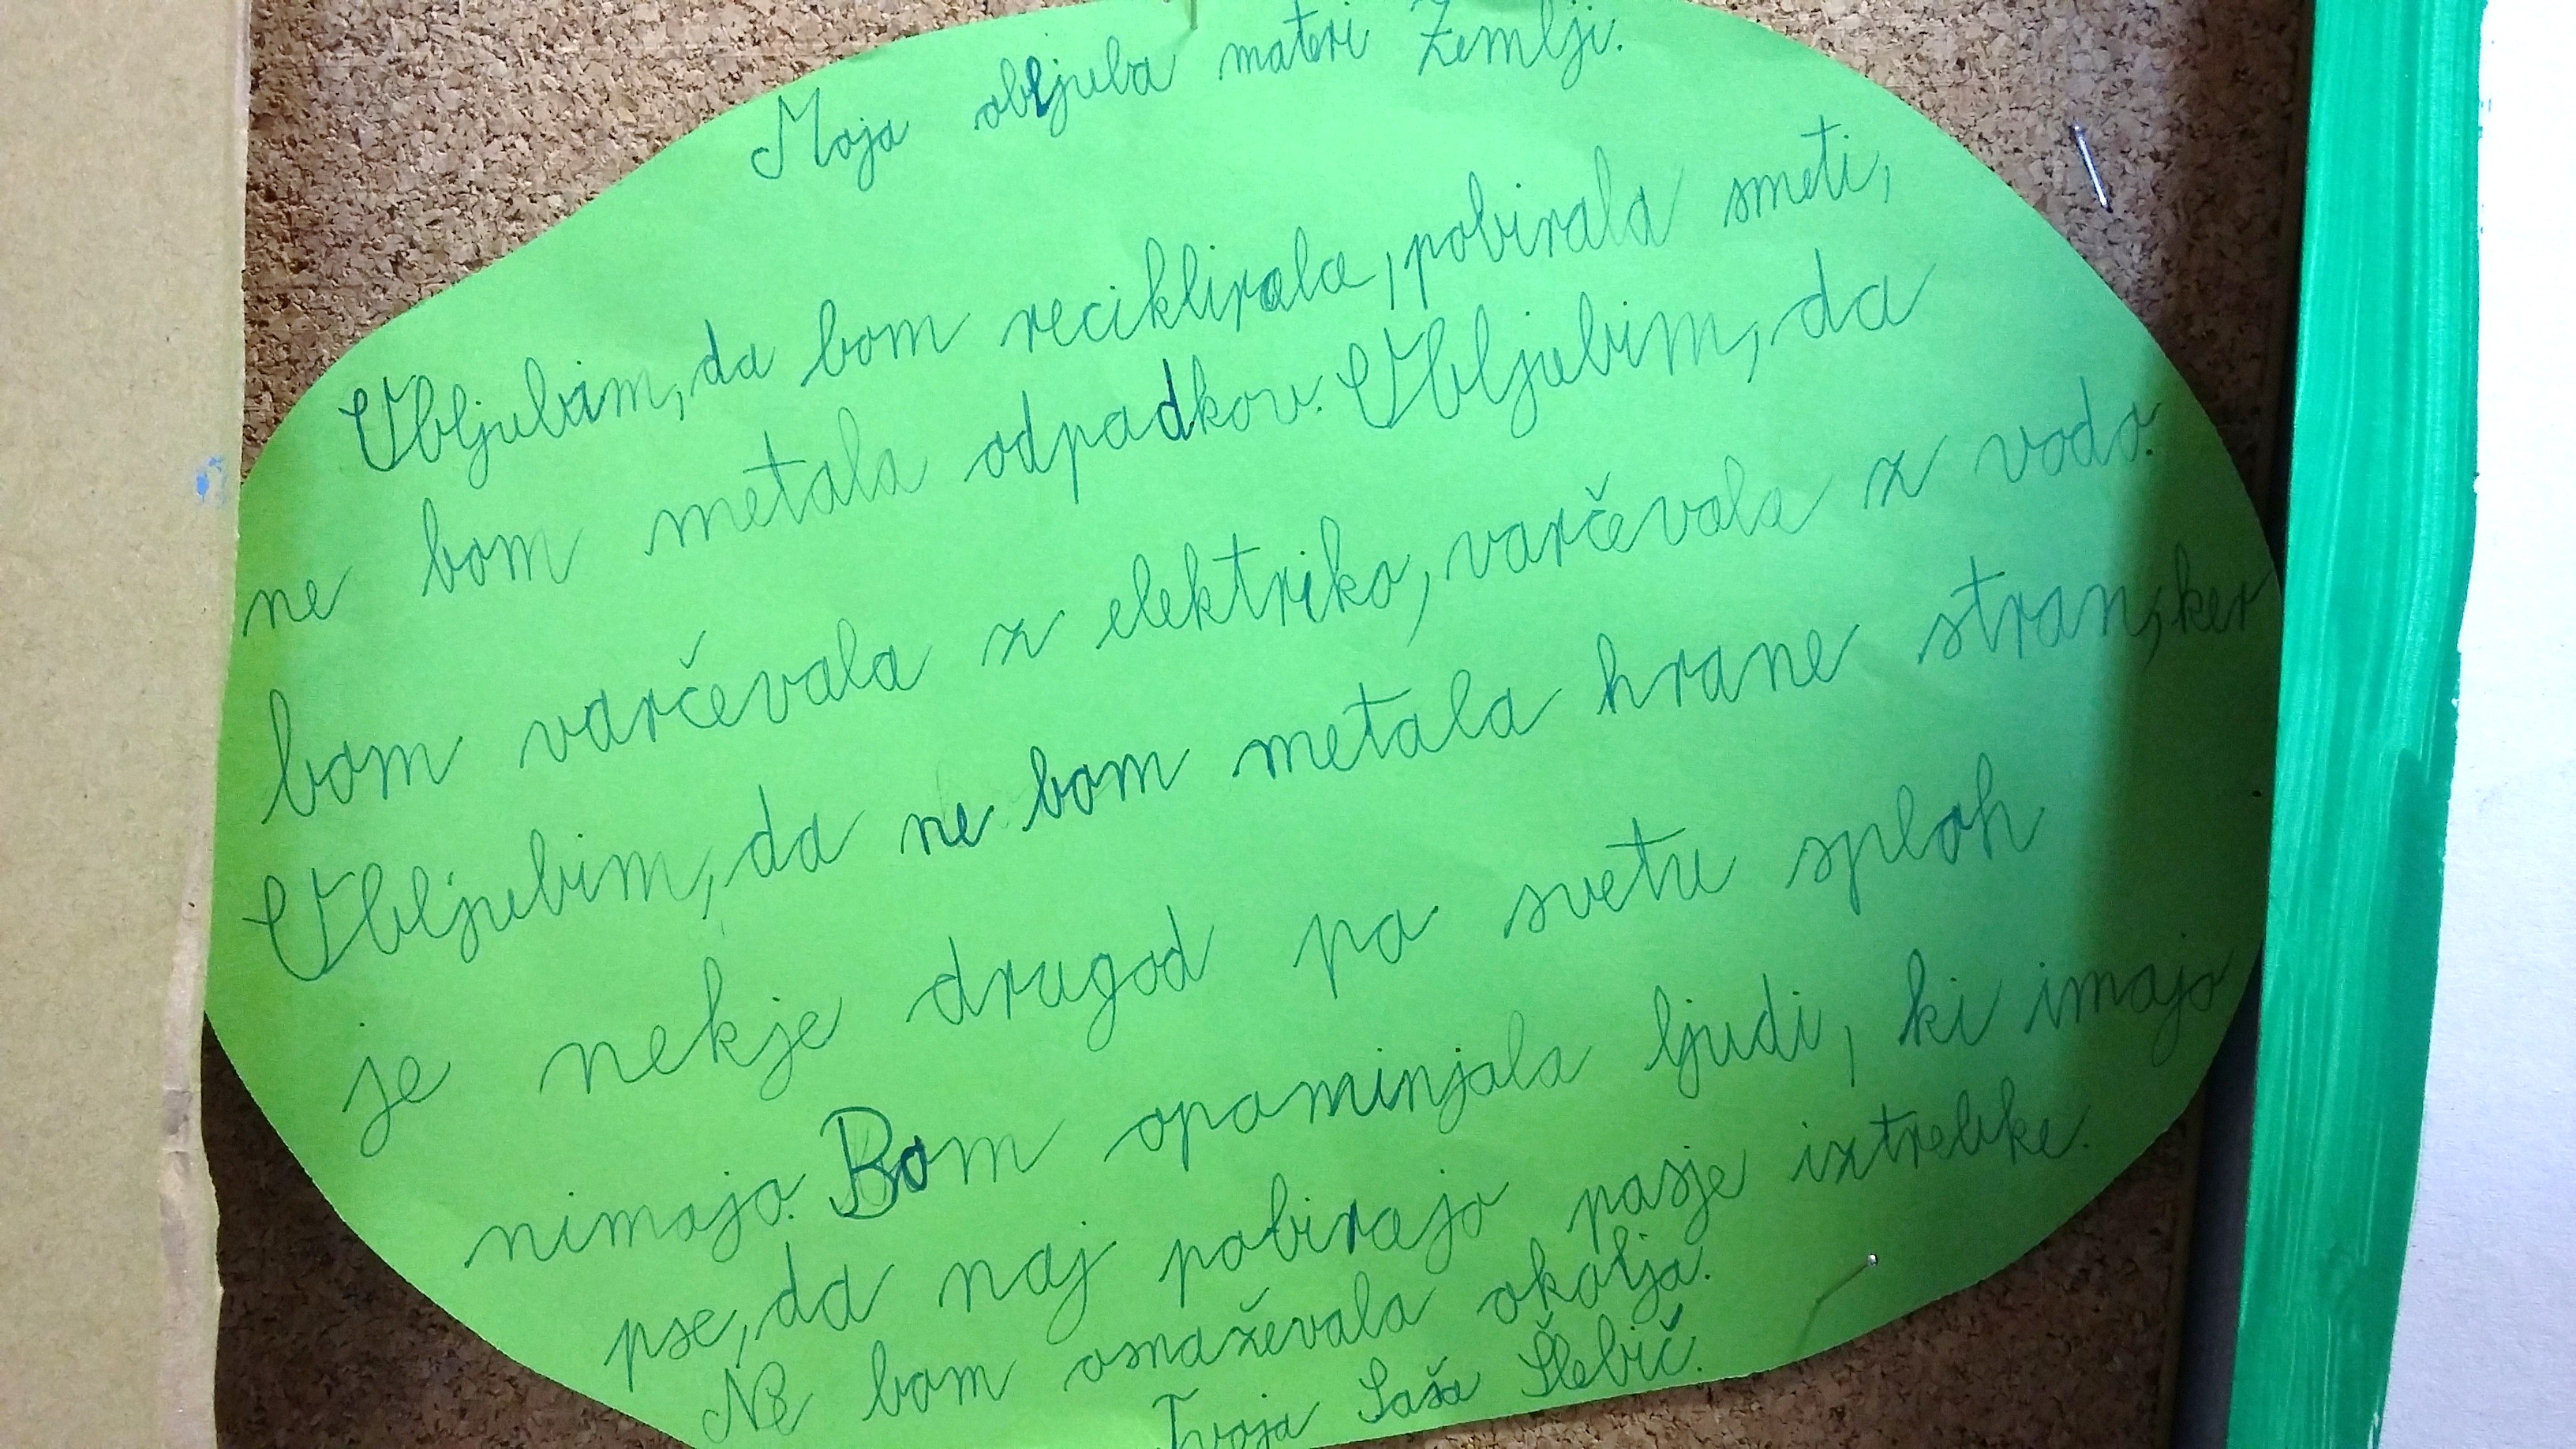 Moja obljuba materi Zemlji.
Obljubim, da bom reciklirala, pobirala smeti,
ne bom metala odpadkov. Obljubim, da
bom varčevala z elektriko, varčevala z vodo.
Obljubim, da ne bom metala hrane stran, ker
je nekje drugod po svetu sploh
nimajo. Bom opominjala ljudi, ki imajo
pse, da naj pobirajo pasje iztrebke.
Ne bom onaževala okolja.
Tvoja Saša Šlebič.